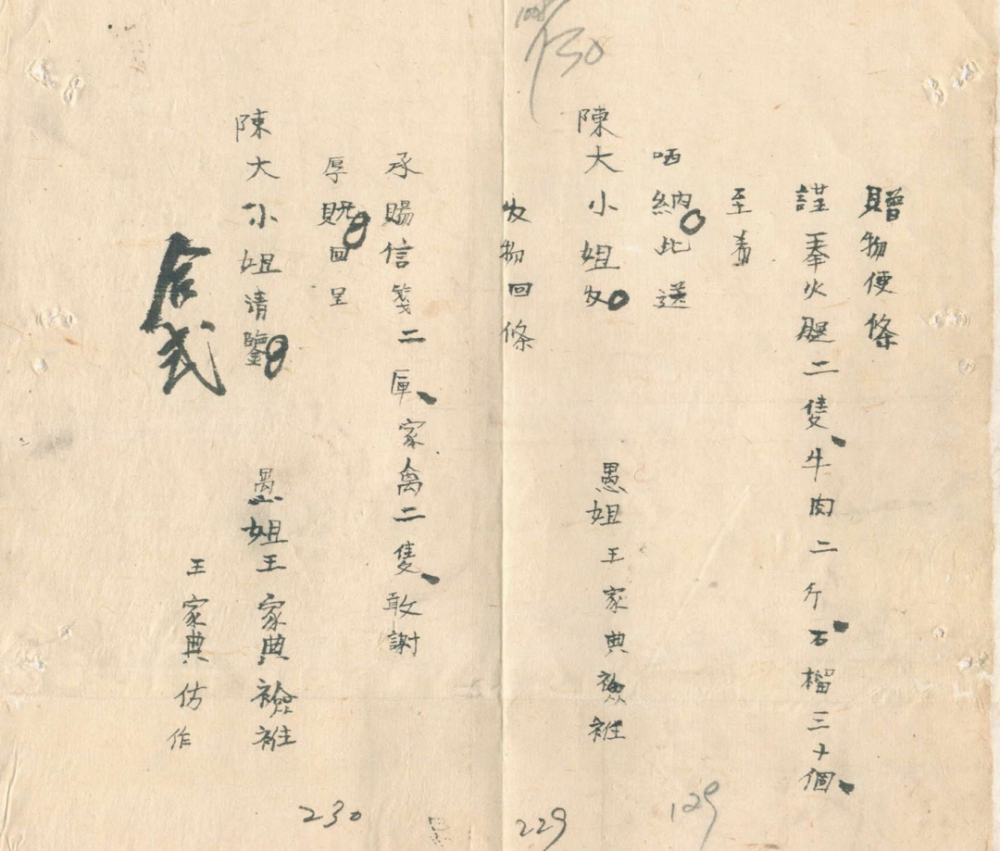 贈物便條
謹奉火腿二隻、牛肉二斤、石榴三十個、
至青
哂納。此送
陳大小姐收。
愚姐王家典襝衽
收物回條
承賜信箋二匣、家禽二隻、敢謝
厚貺。回呈
陳大小姐清鑒。
愚姐王家典襝衽
王家典仿作
合式
130
129
229
230